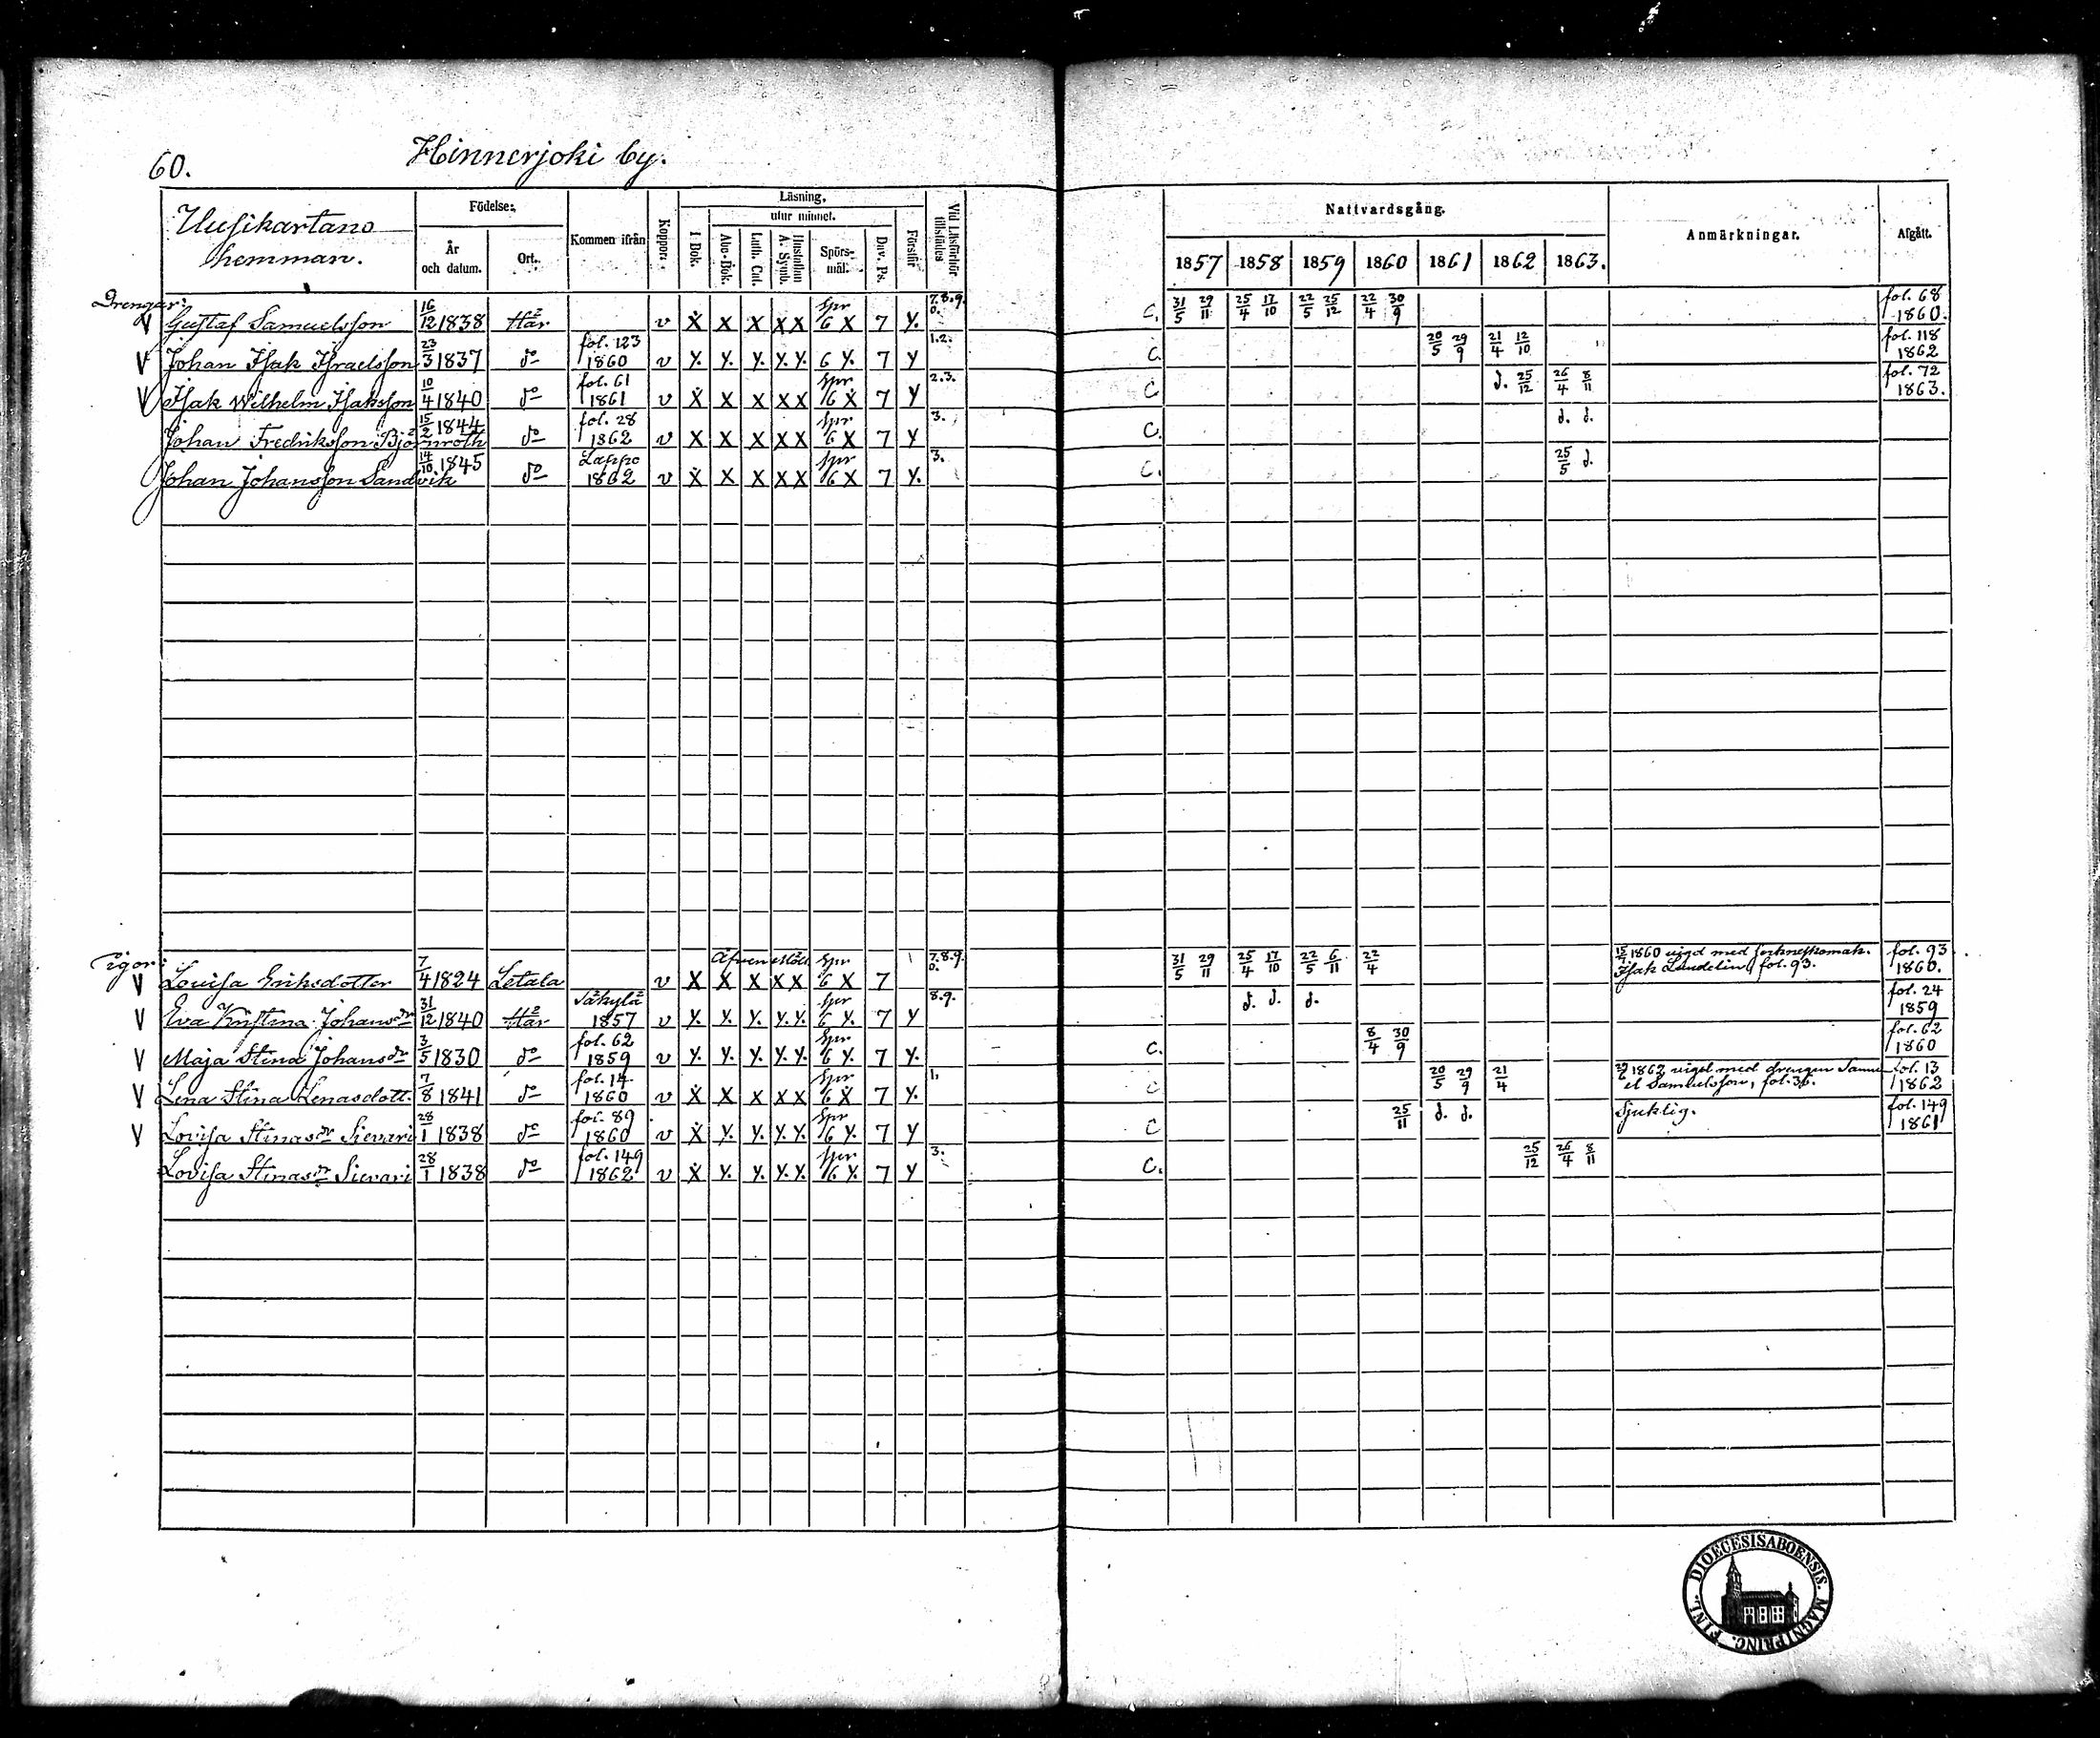 60.
Hinnerjoki by.
Uusikartano
hemman.
Födelse:
År
och datum.
Ort.
Kommen ifrån
Koppor:
Läsning,
utur minnet.
I Bok.
Abc-Bok.
Luth. Cat.
Hustaflan
A. Symb.
Spörs-
mål.
Dav. Ps.
Förstår
Vid Läsförhör
tillstädes
Nattvardsgång.
1857 1858 1859 1860 1861 1862 1863.
Anmärkningar.
Afgått.
Drengar:
V Gustaf Samuelsson 16/12 1838 Här v X X X X X Spr 6 X 7 Y. 7.8.9.0. C. 31/5 29/11 25/4 17/10 22/5 25/12 22/4 30/9 fol. 68 1860.
V Johan Isak Israelsson 23/3 1837 do fol. 123 1860 v Y. Y. Y. Y. Y. 6 Y. 7 Y 1.2. C. 20/5 29/9 21/4 12/10 fol. 118 1862
V Isak Wilhelm Isaksson 10/4 1840 do fol. 61 1861 v X X X X X Spr 6 X 7 Y 2.3. C. d. 25/12 26/4 8/11 fol. 72 1863.
Johan Fredriksson Björnroth 15/2 1844 do fol. 28 1862 v X X X X X Spr 6 X 7 Y 3. C. d. d.
Johan Johansson Sandvik 14/10 1845 do Lappo 1862 v X X X X X Spr 6 X 7 Y. 3. C. 25/5 d.
Pigor:
V Lovisa Eriksdotter 7/4 1824 Letala v X X X X X Spr 6 X 7 7.8.9.0. 31/5 29/11 25/4 17/10 22/5 6/11 22/4 1860 vigd med Isak Lundelin, fol. 93. fol. 93 1860.
V Eva Kristina Johansdr 31/12 1840 Här Säkylä 1857 v Y. Y. Y. Y. Y. Spr 6 Y. 7 Y 8.9. d. d. d. fol. 24 1859
V Maja Stina Johansdr 3/5 1830 do fol. 62 1859 v Y. Y. Y. Y. Y. Spr 6 Y. 7 Y. C. 8/4 30/9 fol. 62 1860
V Lena Stina Lenasdott. 7/8 1841 do fol. 14 1860 v X X X X X Spr 6 X 7 Y. 1. C 20/5 29/9 21/4 1862 vigd med drengen Samuel Samuelsson, fol. 36. fol. 13 1862
V Lovisa Stinasdr Sievari 28/1 1838 do fol. 89 1860 v X Y. Y. Y. Y. Spr 6 Y. 7 Y C 25/11 d. d. Sjuklig. fol. 149 1861
Lovisa Stinasdr Sievari 28/1 1838 do fol. 149 1862 v X Y. Y. Y. Y. Spr 6 Y. 7 Y 3. C. 25/12 26/4 8/11
DIOECESIS ABOENSIS. MAGNI PRINC. FINL.